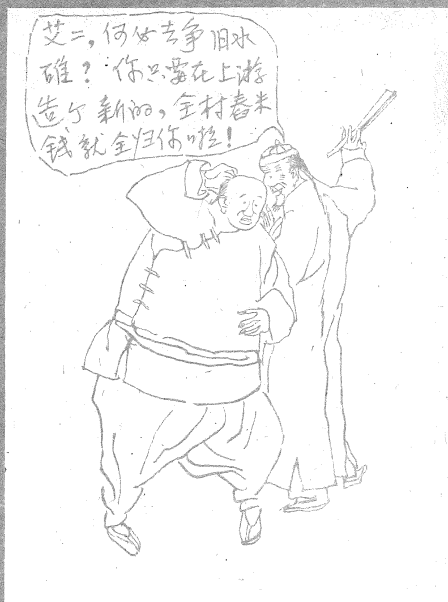 艾二，何必去争旧水
碓？你只要在上游
造个新的，全村舂米
钱就全归你啦！